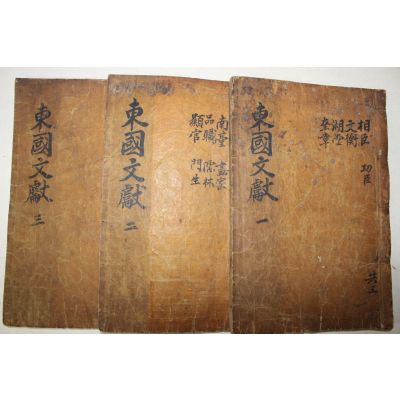 相臣 功臣
文衡
湖堂
奎章
東國文獻 一
共三
南臺 畫家
品職 儒林
顯官 門生
東國文獻 二
東國文獻 三